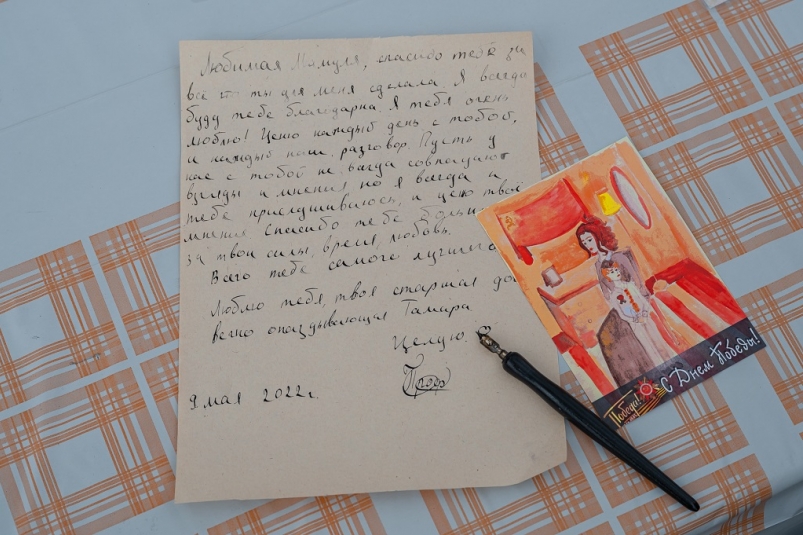 Любимая Мамуля, спасибо тебе за
всё что ты для меня сделала. Я всегда
буду тебе благодарна. Я тебя очень
люблю! Ценю каждый день с тобой,
и каждый наш разговор. Пусть у
нас с тобой не всегда совпадают
взгляды и мнения но я всегда к
тебе прислушиваюсь, и ценю твоё
мнения. Спасибо тебе большое
за твои силы, время, любовь.
Всего тебе самого лучшего
Люблю тебя, твоя старшая до
вечно опаздывающая Тамара
Целую.
9 мая 2022г.
Победа!
С Днем Победы!